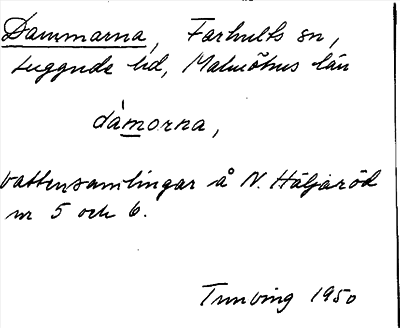 Dammarna, Farhults sn,
Luggude hd, Malmöhus län
dàmorna,
vattensamlingar å N. Häljaröd
nr 5 och 6.
1950